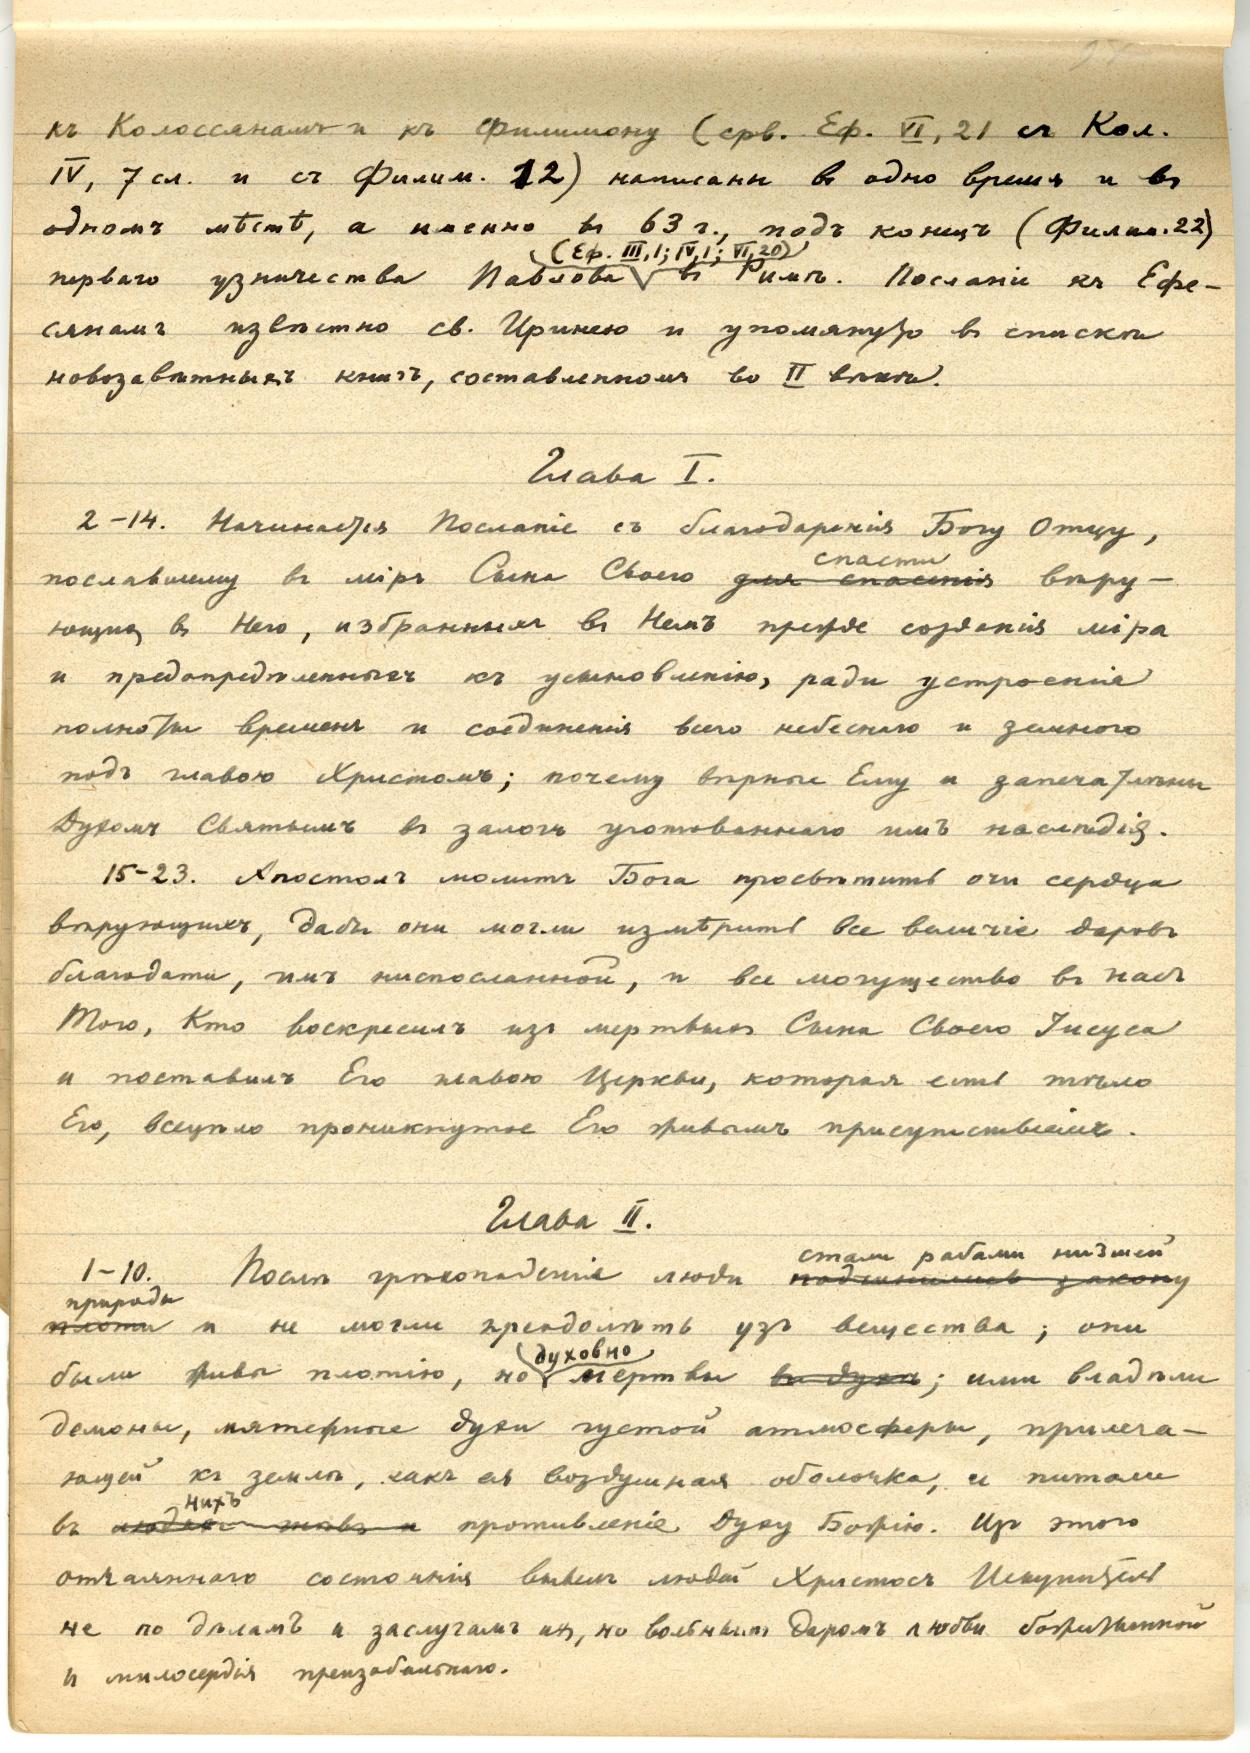 къ Колоссянамъ и къ Филимону (срв. Еф. VI, 21 съ Кол.
IV, 7 сл. и съ Филим. 12) написаны въ одно время и въ
одномъ мѣстѣ, а именно въ 63 г., подъ конецъ (Филим. 22)
(Еф. III, 1; IV, 1; VI, 20)
перваго узничества Павлова въ Римѣ. Посланіе къ Ефе-
сянамъ извѣстно св. Иринею и упомянуто въ спискѣ
новозавѣтныхъ книгъ, составленномъ во II вѣкѣ.
Глава I.
2-14. Начинается Посланіе съ благодаренія Богу Отцу,
спасти
пославшему въ міръ Сына Своего для спасенія вѣру-
ющихъ въ Него, избранныхъ въ Немъ прежде созданія міра
и предопредѣленныхъ къ усыновленію, ради устроенія
полноты временъ и соединенія всего небеснаго и земного
подъ главою Христомъ; почему вѣрные Ему и запечатлѣны
Духомъ Святымъ въ залогъ уготованнаго имъ наслѣдія.
15-23. Апостолъ молитъ Бога просвѣтить очи сердца
вѣрующихъ, дабы они могли измѣрить все величіе даровъ
благодати, имъ ниспосланной, и все могущество въ насъ
Того, Кто воскресилъ изъ мертвыхъ Сына Своего Іисуса
и поставилъ Его главою Церкви, которая есть тѣло
Его, всецѣло проникнутое Его живымъ присутствіемъ.
Глава II.
стали рабами низшей
1-10. Послѣ грѣхопаденія люди подчинились закону
природы
плоти и не могли преодолѣть узъ вещества; они
духовно
были живы плотію, но мертвы въ духѣ; ими владѣли
демоны, мятежные духи густой атмосферы, прилега-
ющей къ землѣ, какъ ея воздушная оболочка, и питали
нихъ
въ противленіе Духу Божію. Изъ этого
отчаяннаго состоянія вывелъ людей Христосъ Искупитель
не по дѣламъ и заслугамъ ихъ, но вольнымъ даромъ любви божественной
и милосердія преизобильнаго.